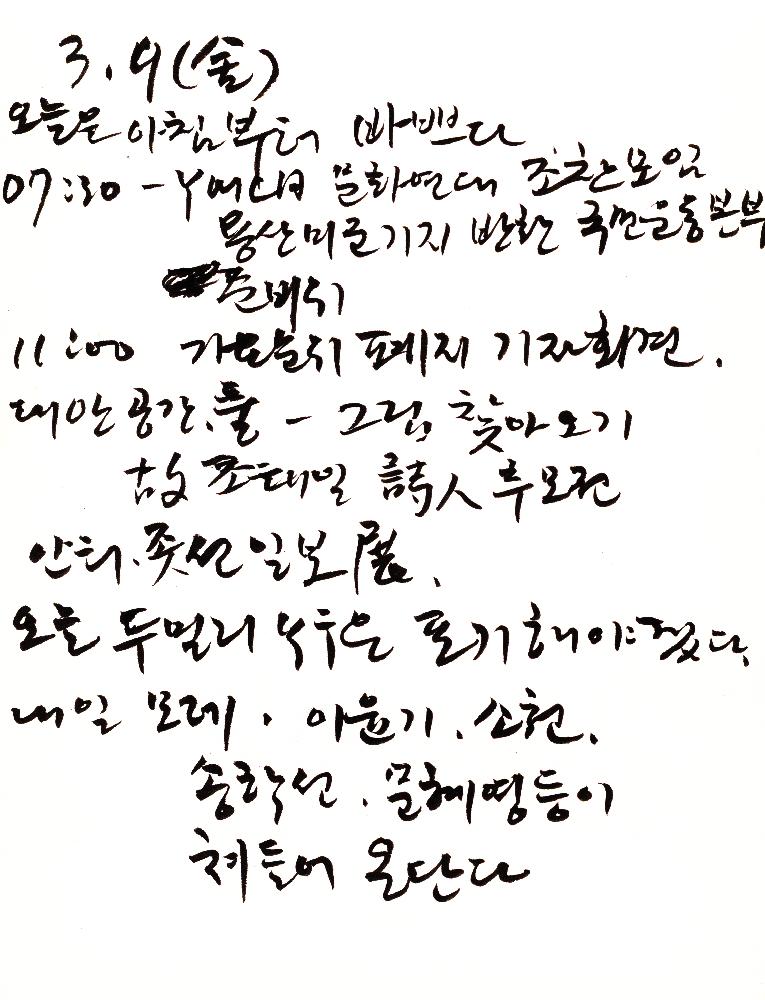 3.9(金)
오늘은 아침부터 바쁘다
07:30 - YMCA 문화연대 조찬모임
용산미군기지 반환 국민운동본부
준비위
11:00 기자회견.
대안공간.풀 - 그림 찾아오기
故 조태일 詩人 추모전
안티.조선일보展.
오늘 두멀리 낙주은 포기해야겠다.
내일 모레. 이윤기.
송락선. 문혜영등이
쳐들어 온단다